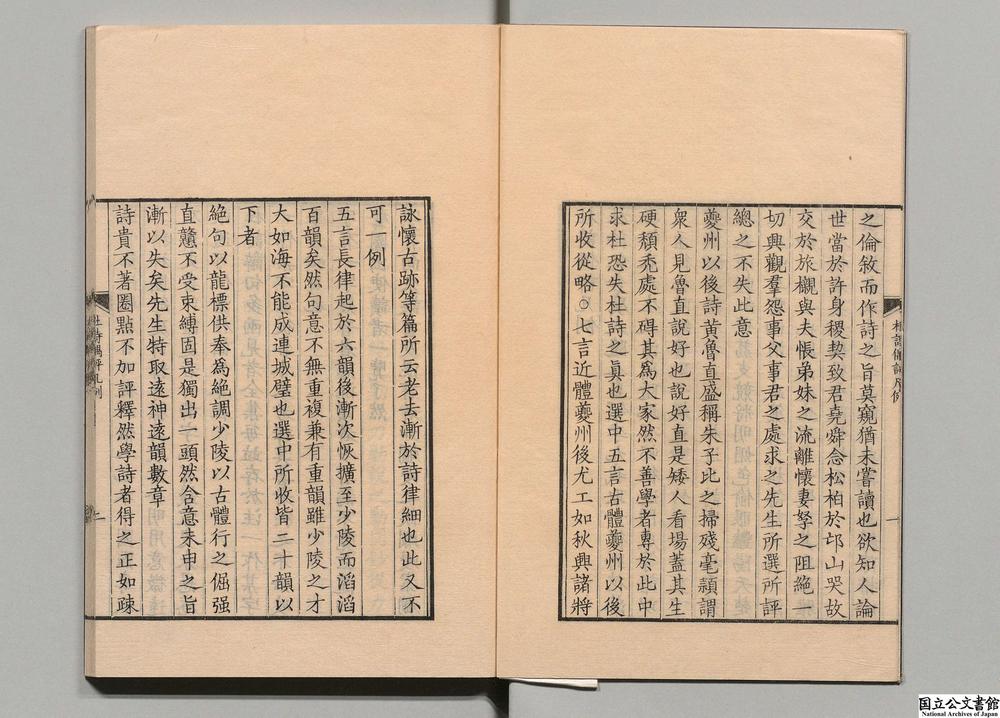 之倫敘而作詩之旨莫窺猶未嘗讀也欲知人論
世當於許身稷契致君堯舜念松柏於邙山哭故
交於旅櫬與夫悵弟妹之流離懷妻孥之阻絶一
切興觀羣怨事父事君之處求之先生所選所評
總之不失此意
夔州以後詩黃魯直盛稱朱子比之掃殘毫穎謂
衆人見魯直說好也說好直是矮人看場蓋其生
硬頹禿處不碍其爲大家然不善學者專於此中
求杜恐失杜詩之眞也選中五言古體夔州以後
所收從略○七言近體夔州後尤工如秋興諸將
杜詩偶評凡例
一
詠懷古跡等篇所云老去漸於詩律細也此又不
可一例
五言長律起於六韻後漸次恢擴至少陵而滔滔
百韻矣然句意不無重複兼有重韻雖少陵之才
大如海不能成連城璧也選中所收皆二十韻以
下者
絕句以龍標供奉爲絕調少陵以古體行之倔强
直戇不受束縛固是獨出一頭然含意未申之旨
漸以失矣先生特取遠神遠韻數章
詩貴不著圈點不加評釋然學詩者得之正如疎
杜詩偶評凡例
二
国立公文書館
National Archives of Japan